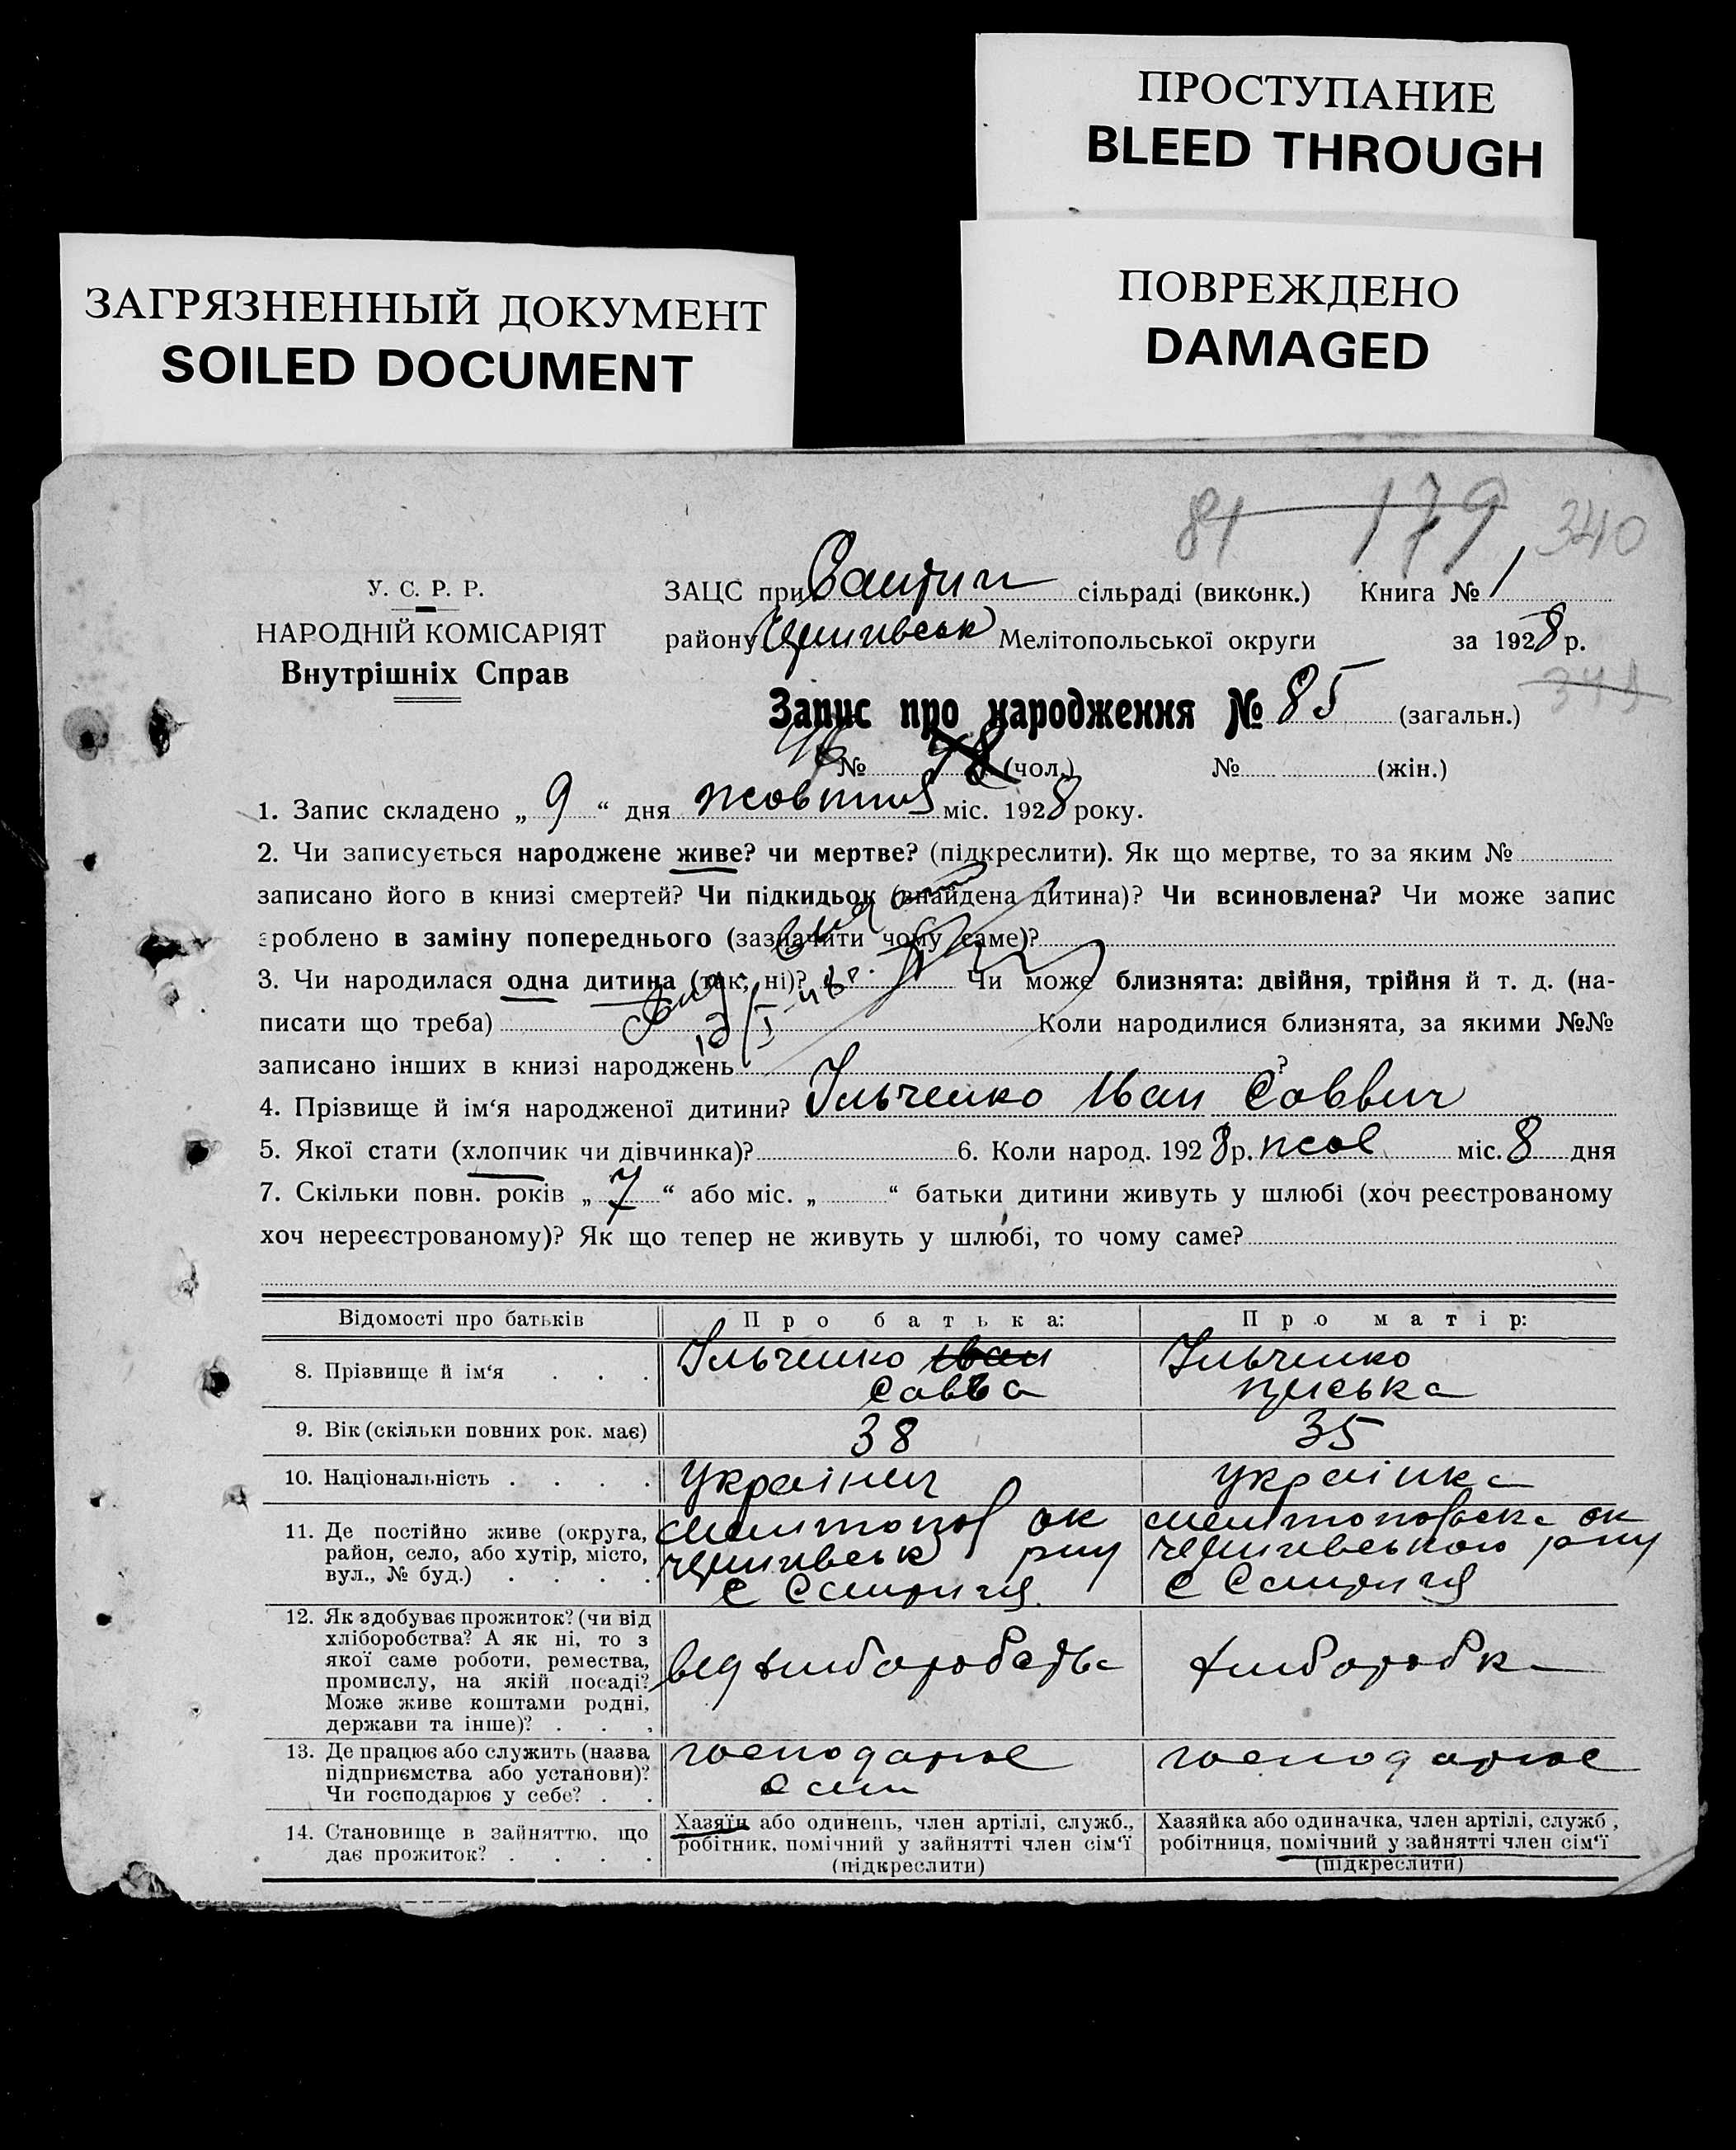 ПРОСТУПАНИЕ
BLEED THROUGH
ЗАГРЯЗНЕННЫЙ ДОКУМЕНТ
SOILED DOCUMENT
ПОВРЕЖДЕНО
DAMAGED
81 179 340
У. С. Р. Р.
НАРОДНІЙ КОМІСАРІЯТ
Внутрішніх Справ
ЗАЦС при сільраді (виконк.) Книга № 1
району Мелітопольської округи за 1928 р.
Запис про народження № 85 (загальн.)
№ (чол.) № (жін.)
1. Запис складено „ 9 “ дня жовтня міс. 1928 року.
2. Чи записується народжене живе? чи мертве? (підкреслити). Як що мертве, то за яким №
записано його в книзі смертей? Чи підкидьок (внайдена дитина)? Чи всиновлена? Чи може запис
зроблено в заміну попереднього (зазначити чому саме)?
3. Чи народилася одна дитина (так, ні)? Чи може близнята: двійня, трійня й т. д. (на-
писати що треба) Коли народилися близнята, за якими №№
записано інших в книзі народжень ?
4. Прізвище й ім‘я народженої дитини? Ільченко Іван Саввич
5. Якої стати (хлопчик чи дівчинка)? 6. Коли народ. 1928 р. жов міс. 8 дня
7. Скільки повн. років „ 7 “ або міс. „ “ батьки дитини живуть у шлюбі (хоч реєстрованому
хоч нереєстрованому)? Як що тепер не живуть у шлюбі, то чому саме?
Відомості про батьків Про батька: Про матір:
8. Прізвище й ім‘я Ільченко Іван Савва Ільченко
9. Вік (скільки повних рок. має) 38 35
10. Національність українец українка
11. Де постійно живе (округа,
район, село, або хутір, місто,
вул., № буд.)
12. Як здобуває прожиток? (чи від
хліборобства? А як ні, то з
якої саме роботи, ремества,
промислу, на якій посаді?
Може живе коштами родні,
держави та інше)?
від хліборобства хліборобка
13. Де працює або служить (назва
підприємства або установи)?
Чи господарює у себе?
господарює сам господарює
14. Становище в зайняттю, що
дає прожиток?
Хазяїн або одинець, член артілі, служб.,
робітник, помічний у зайнятті член сім‘ї
(підкреслити)
Хазяйка або одиначка, член артілі, служб,
робітниця, помічний у зайнятті член сім‘ї
(підкреслити)